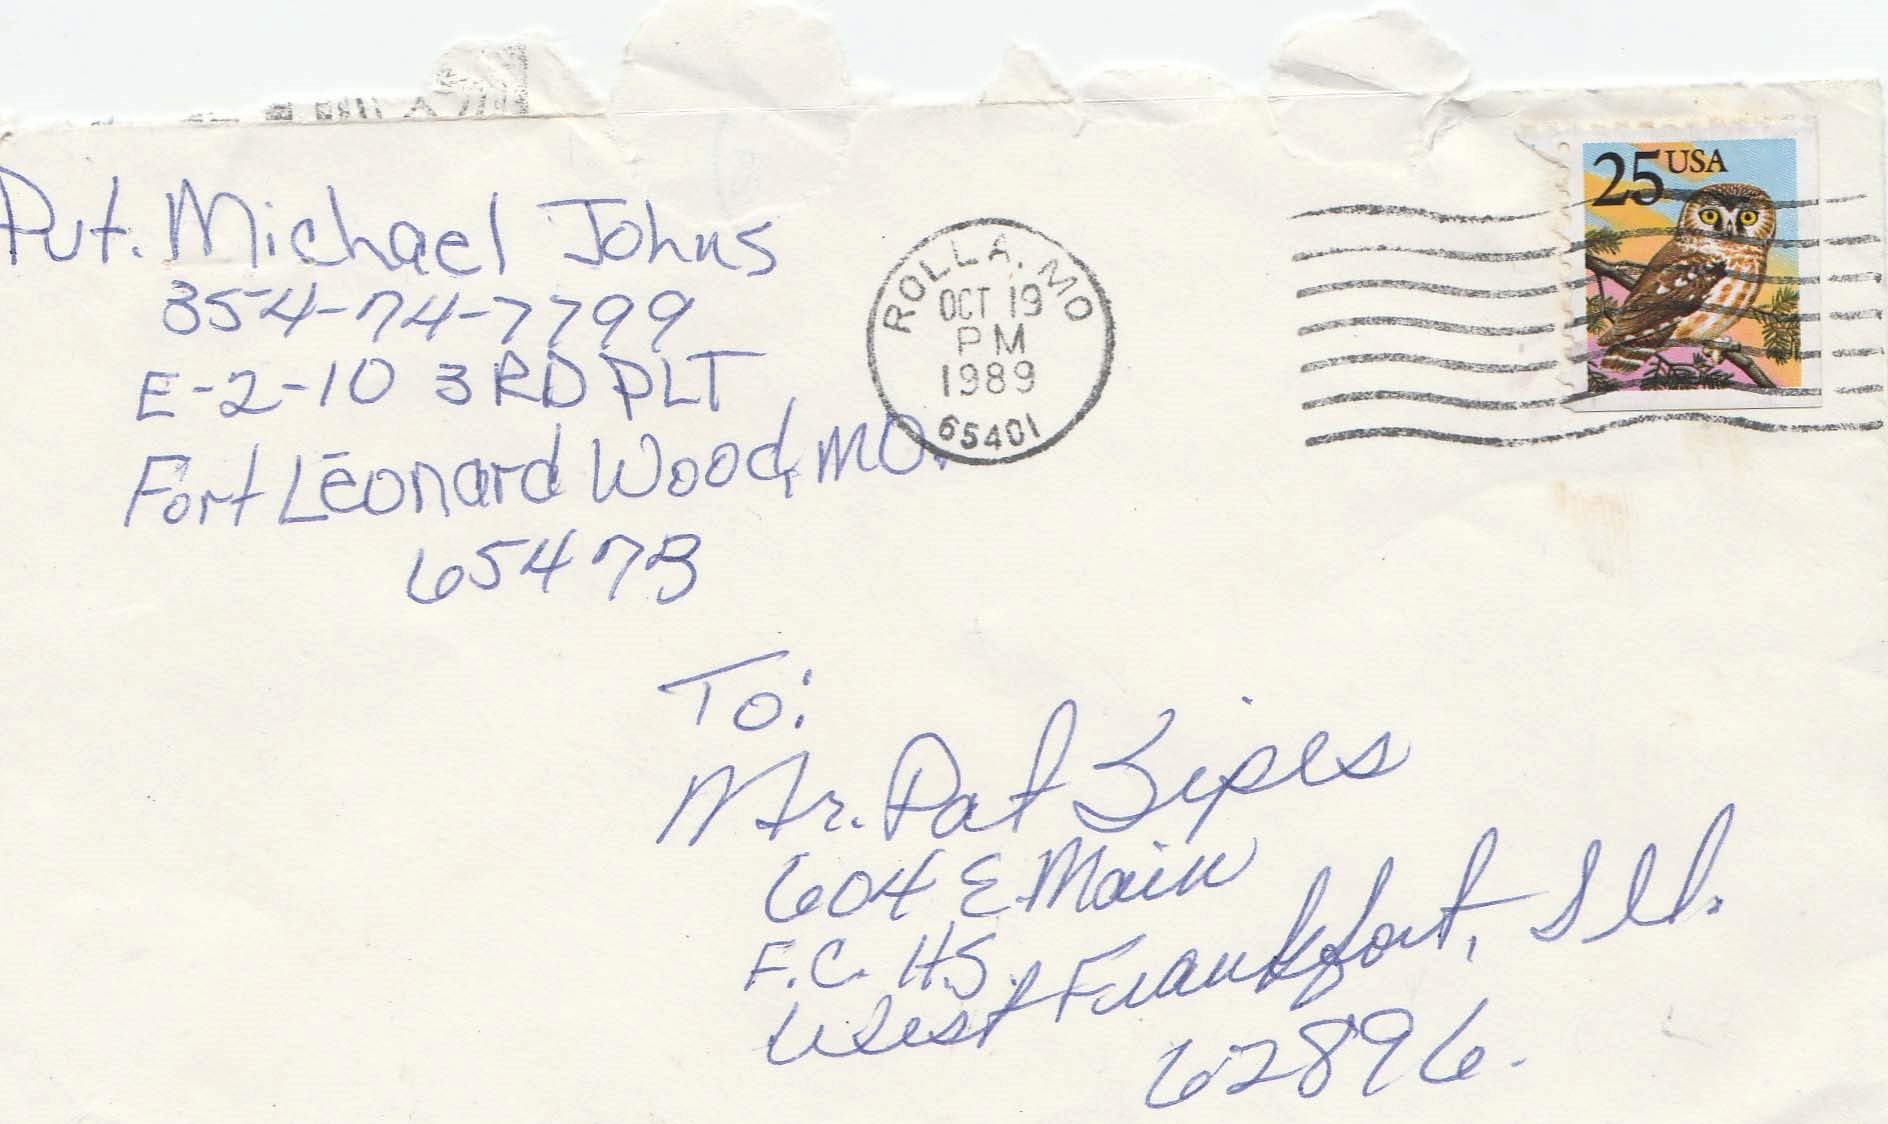 25 USA
Pvt. Michael Johns
354-74-7799
E-2-10 3RD PLT
Fort Leonard Wood, MO.
65473
ROLLA, MO
OCT 19
PM
1989
65401
To:
Mr. Pat Sipes
604 E. Main
F.C. H.S.
West Frankfort, Ill.
62896.